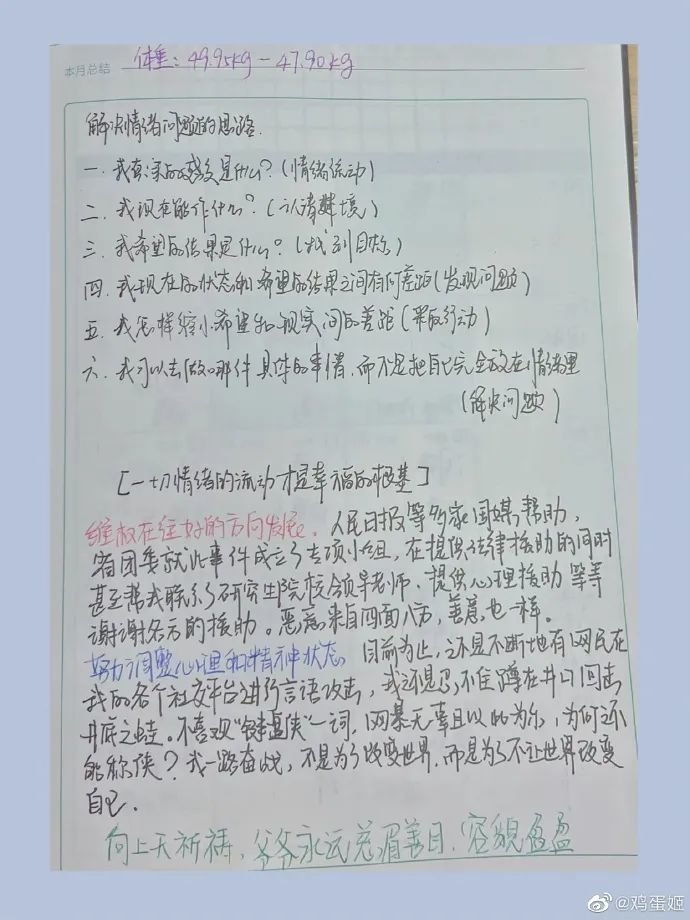 本月总结 体重:49.95kg-47.90kg
解决情绪问题的思路.
一.我真深的感受是什么?(情绪流动)
二.我现在能作什么?(认清环境)
三.我希望的结果是什么?(找到目标)
四.我现在的状态和希望的结果之间有何差距(发现问题)
五.我怎样缩小希望和现实间的差距(采取行动)
六.我可以去做哪件具体的事情,而不是把自己完全放在情绪里
(解决问题)
[一切情绪的流动才是幸福的根基]
维权在往好的方向发展.人民日报等多家国媒帮助,
省团委就此事件成立了专项小组,在提供法律援助的同时
甚至帮我联系了研究生院校领导老师,提供心理援助等等
谢谢各方的援助。恶意来自四面八方,善意也一样。
努力调整心理和精神状态.目前为止,还是不断地有网民在
我的各个社交平台进行言语攻击,我还是忍不住蹲在井口回击
井底之蛙。不喜欢“键盘侠”一词,网暴无辜且以此为乐,为何还
能称侠?我一路奋战,不是为了改变世界,而是为了不让世界改变
自己.
向上天祈祷,爷爷永远慈眉善目,容貌盈盈
@鸡蛋姬